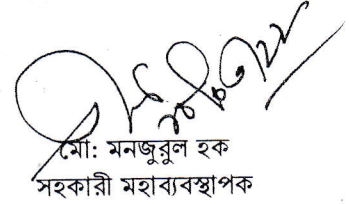 মো: মনজুরুল হক
সহকারী মহাব্যবস্থাপক